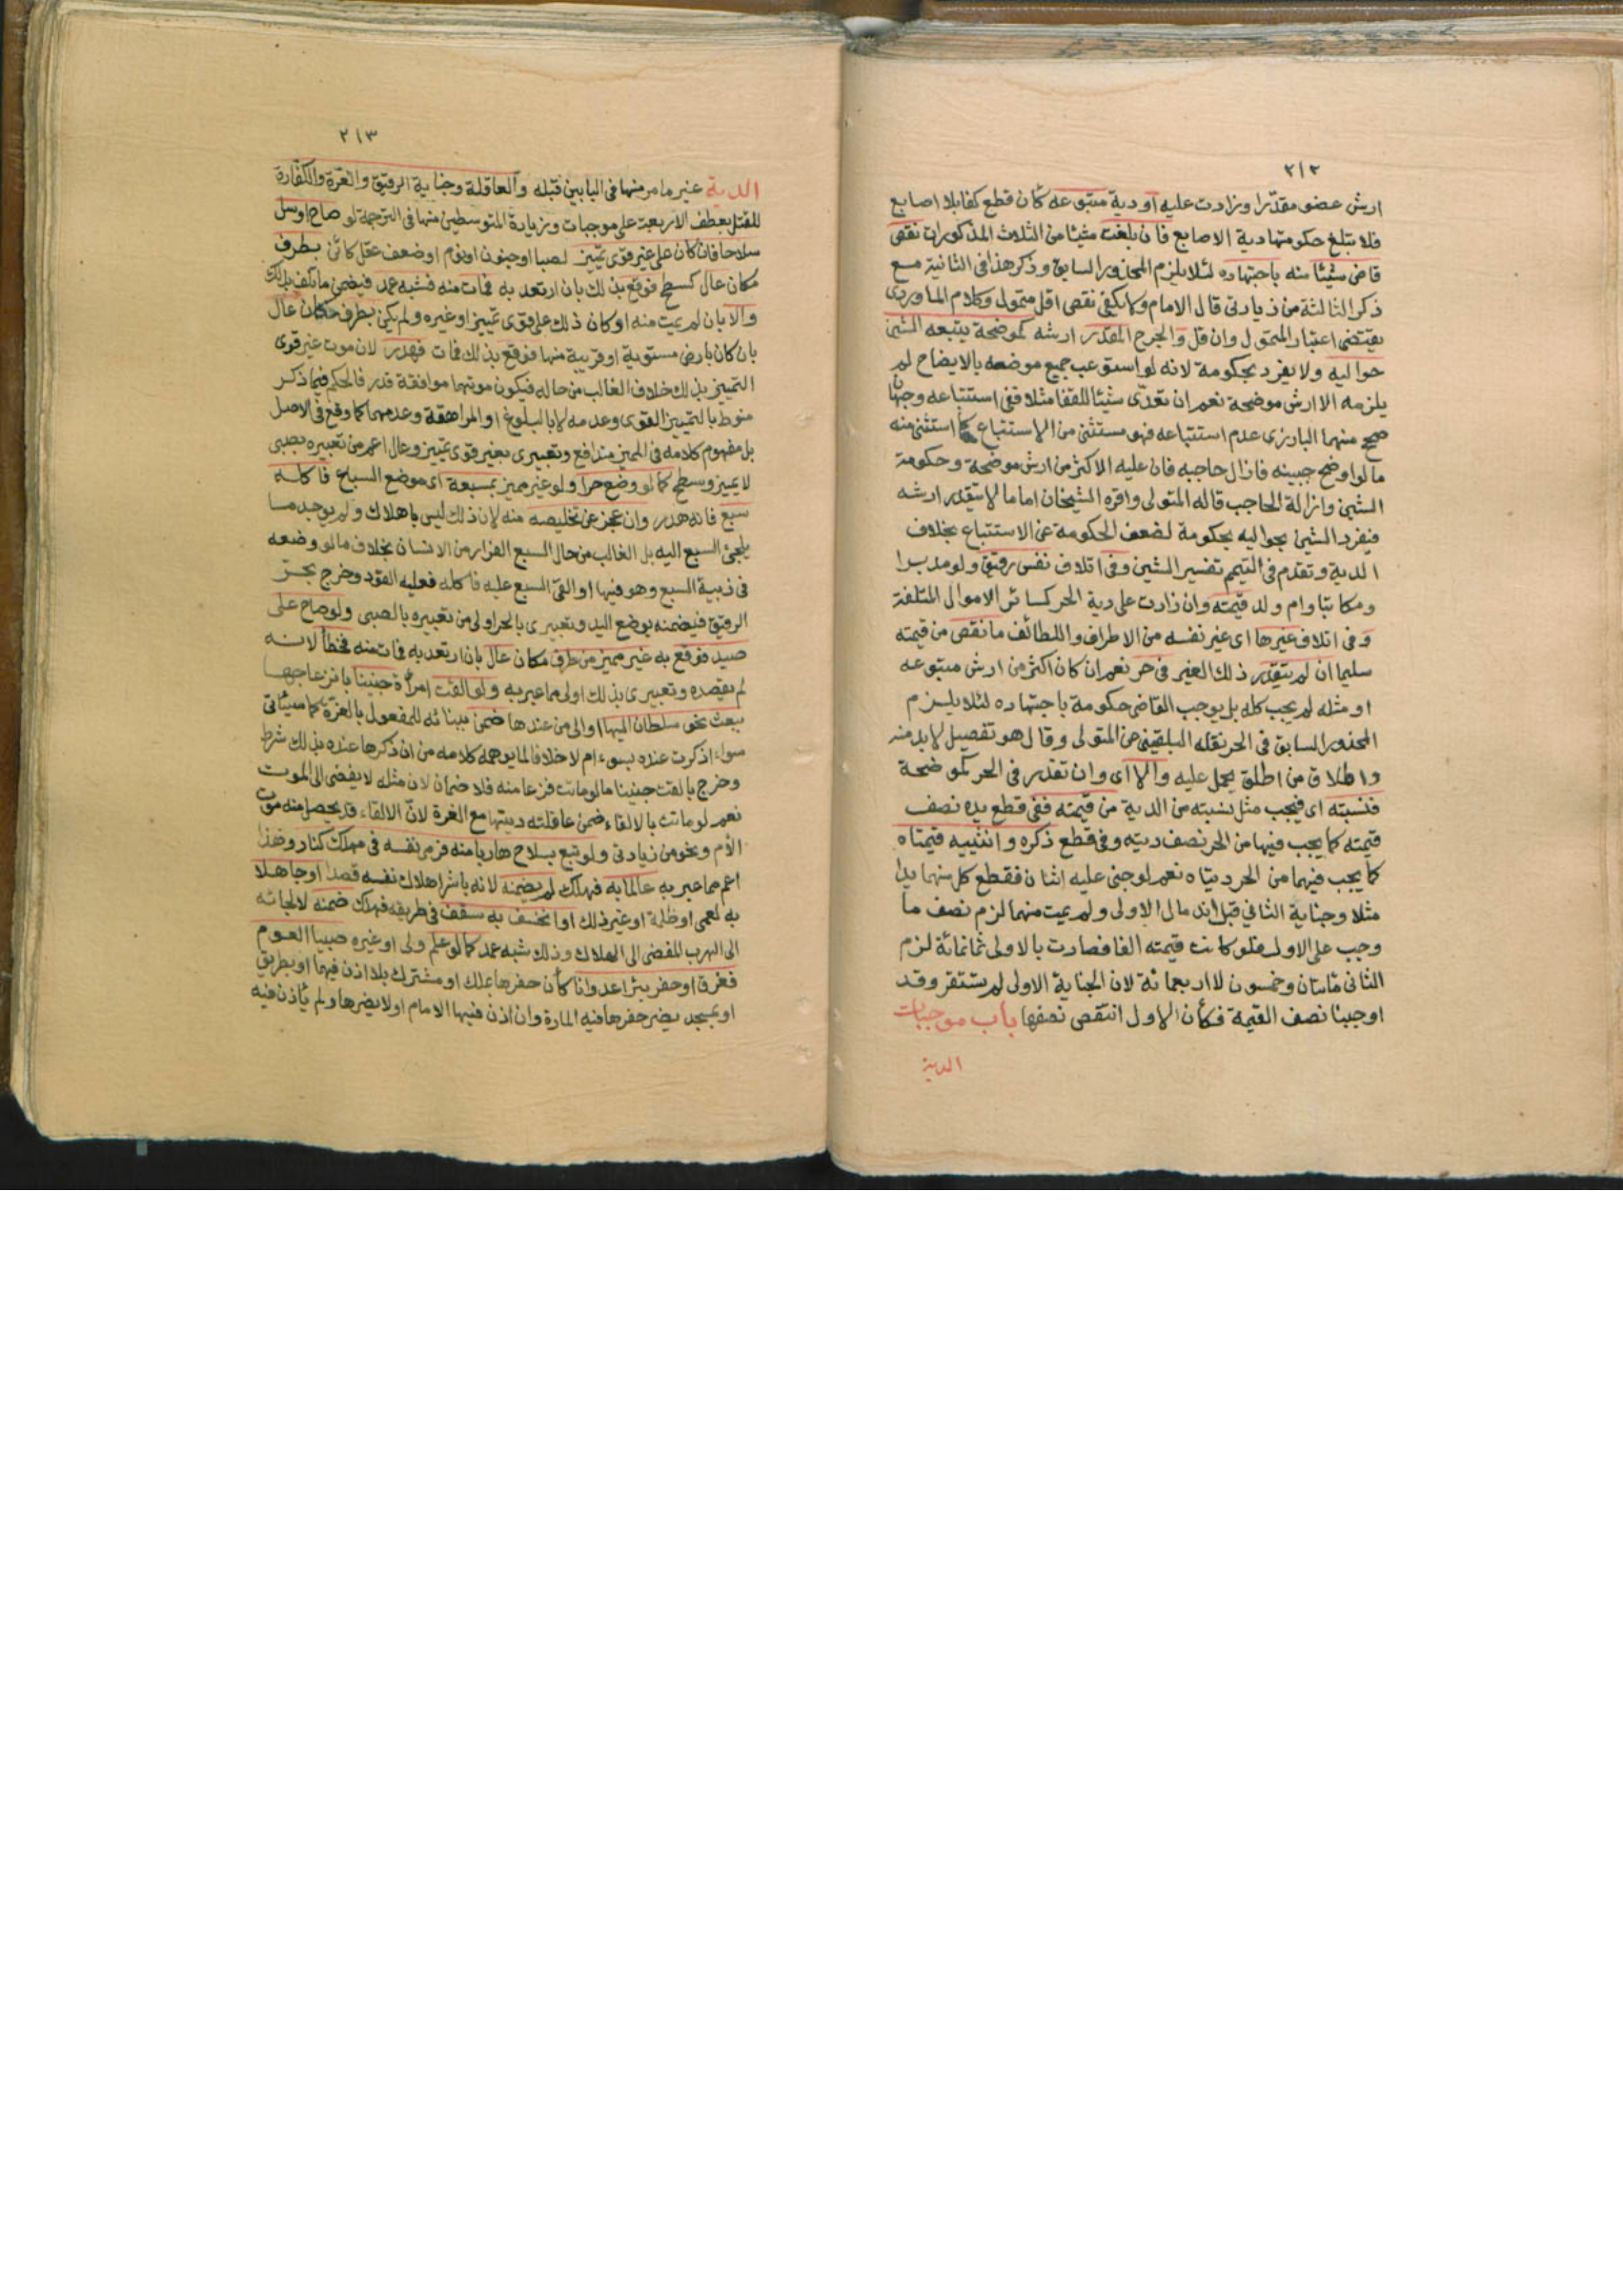 ٢١٢
ارش عضو مقدرا وزادت عليه او دية متبوعه كأن قطع كفا بلا اصابع
فلا تبلغ حكومتها دية الاصابع فان بلغت شيئا من الثلاث المذكورات نقص
قاض شيئا منه باجتهاده لئلا يلزم المحذور السابق وذكر هذا في الثانية مع
ذكر الثالثة من زيادتي قال الامام ولا يكفي نقص اقل متمول وكلام الماوردي
يقتضي اعتبار المتمول وان قل والجرح المقدر ارشه كموضحة يتبعه الشين
حواليه ولا يفرد بحكومة لانه لو استوعب جميع موضعه بالايضاح لم
يلزمه الا ارش موضحة نعم ان تعدى شيئا للقفا مثلا ففي استتباعه وجهان
صحح منهما البارزي عدم استتباعه فهو مستثنى من الاستتباع كما استثني منه
ما لو اوضح جبينه فازال حاجبه فان عليه الاكثر من ارش موضحة وحكومة
الشين وازالة الحاجب قاله المتولي واقره الشيخان اما ما لا يتقدر ارشه
فيفرد الشين حواليه بحكومة لضعف الحكومة عن الاستتباع بخلاف
الدية وتقدم في التيمم تفسير الشين وفي اتلاف نفس رقيق ولو مدبرا
ومكاتبا وام ولد قيمته وان زادت على دية الحر كسائر الاموال المتلفة
وفي اتلاف غيرها اي غير نفسه من الاطراف واللطائف ما نقص من قيمته
سليما ان لم يتقدر ذلك الغير في حر نعم ان كان اكثر من ارش متبوعه
او مثله لم يجب كله بل يوجب القاضي حكومة باجتهاده لئلا يلزم
المحذور السابق في الحر نقله البلقيني عن المتولي وقال هو تفصيل لا بد منه
واطلاق من اطلق يحمل عليه والا اي وان تقدر في الحر كموضحة
فنسبته اي فيجب مثل نسبته من الدية من قيمته ففي قطع يده نصف
قيمته كما يجب فيها من الحر نصف ديته وفي قطع ذكره وانثييه قيمتاه
كما يجب فيهما من الحر ديتاه نعم لو جنى عليه اثنان فقطع كل منهما يدا
مثلا وجناية الثاني قبل اندمال الاولى ولم يمت منهما لزم نصف ما
وجب على الاول فلو كانت قيمته الفا فصارت بالاولى ثمانمائة لزم
الثاني مائتان وخمسون لا اربعمائة لان الجناية الاولى لم تستقر وقد
اوجبنا نصف القيمة فكأن الاول انتقص نصفها باب موجبات
الدية
٢١٣
الدية غير ما مر منها في البابين قبله والعاقلة وجناية الرقيق والغرة والكفارة
للقتل بعطف الاربعة على موجبات وزيادة المتوسطين منها في الترجمة لو صاح او سل
سلاحا فان كان على غير قوي تمييز لصبا او جنون او نوم او ضعف عقل كائن بطرف
مكان عال كسطح فوقع بذلك بان ارتعد به فمات منه فشبه عمد فيضمن ما تلف بذلك
والا بان لم يمت منه او كان ذلك على قوي تمييز او غيره ولم يكن بطرف مكان عال
بان كان بارض مستوية او قريبة منها فوقع بذلك فمات فهدر لان موت غير قوي
التمييز بذلك خلاف الغالب من حاله فيكون موتهما موافقة قدر فالحكم فيما ذكر
منوط بالتمييز القوي وعدمه لا بالبلوغ او المراهقة وعدمهما كما وقع في الاصل
بل مفهوم كلامه في المميز متدافع وتعبيري بغير قوي تمييز وعال اعم من تعبيره بصبي
لا يميز وسطح كما لو وضع حرا ولو غير مميز بمسبعة اي موضع السباع فاكله
سبع فانه هدر وان عجز عن تخليصه منه لان ذلك ليس باهلاك ولم يوجد ما
يلجئ السبع اليه بل الغالب من حال السبع الفرار من الانسان بخلاف ما لو وضعه
في زبية السبع وهو فيها او القى السبع عليه فاكله فعليه القود وخرج بحر
الرقيق فيضمنه بوضع اليد وتعبيري بالحر اولى من تعبيره بالصبي ولو صاح على
صيد فوقع به غير مميز من طرف مكان عال بان ارتعد به فمات منه فخطأ لانه
لم يقصده وتعبيري بذلك اولى مما عبر به ولو القت امرأة جنينا بانزعاجها
ببعث نحو سلطان اليها او الى من عندها ضمن ببنائه للمفعول بالغرة كما سيأتي
سواء اذكرت عنده بسوء ام لا خلافا لما يوهمه كلامه من ان ذكرها عنده بذلك شرط
وخرج بالقت جنينا ما لو ماتت فزعا منه فلا ضمان لان مثله لا يفضي الى الموت
نعم لو ماتت بالالقاء ضمن عاقلته ديتها مع الغرة لان الالقاء قد يحصل منه موت
الأم ونحو من زيادتي ولو تبع بسلاح هاربا منه فرمى نفسه في مهلك كنار وهذا
اعم مما عبر به عالما به فهلك لم يضمنه لانه باشر اهلاك نفسه قصدا او جاهلا
به لعمى او ظلمة او غير ذلك او انخسف به سقف في طريقه فهلك ضمنه لالجائه
الى الهرب المفضي الى الهلاك وذلك شبه عمد كما لو علم ولي او غيره صبيا العوم
فغرق او حفر بئرا عدوانا كأن حفرها بملك او مشترك بلا اذن فيهما او بطريق
او بمسجد يضر حفرها فيه المارة وان اذن فيها الامام او لا يضرها ولم يأذن فيه